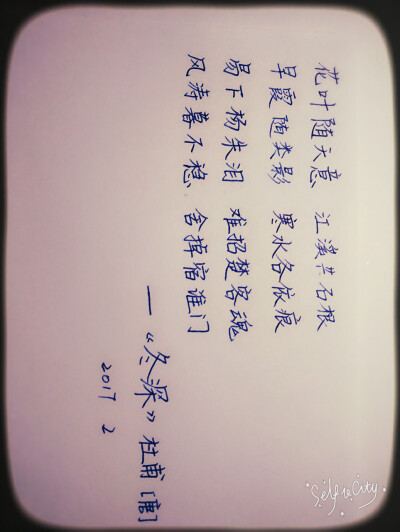 花叶随天意 江溪共石根
早霞随类影 寒水各依痕
易下杨朱泪 难招楚客魂
风涛暮不稳 舍掉宿谁门
——《冬深》杜甫 [唐]
2017 2
Selfie City